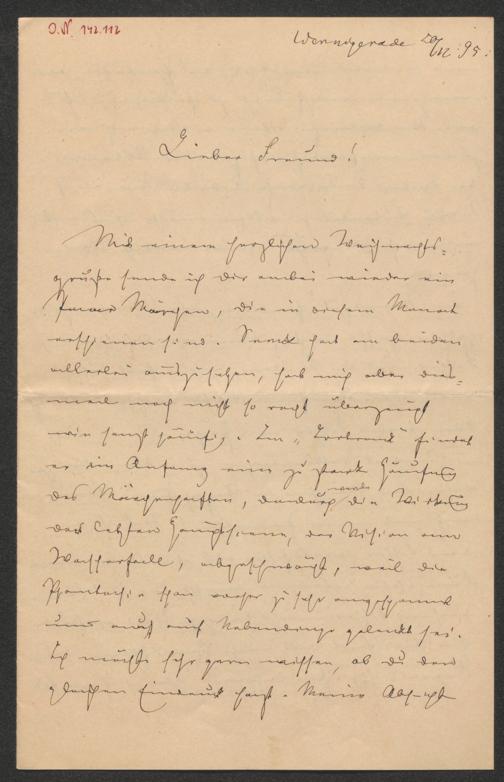 O.N. 142.112
Wernigerode 20/12. 95.
Lieber Freund!
Mit einem herzlichen Weihnachts-
gruße sende ich dir anbei wieder ein
Paar Märchen, die in diesem Monat
erschienen sind. Frank hat an beiden
allerlei auszusetzen, hat mich aber dies-
mal noch nicht so recht überzeugt
wie sonst häufig. Im „ " findet
er im Anfang eine zu starke Häufung
des Märchenhaften, dadurch werde die Wirkung
der letzten Hauptscene, der Vision am
Wasserfall, abgeschwächt, weil die
Phantasie schon vorher zu sehr angespannt
und auch auf Nebendinge gelenkt sei.
Ich möchte sehr gern wissen, ob du den
gleichen Eindruck hast. Meine Absicht